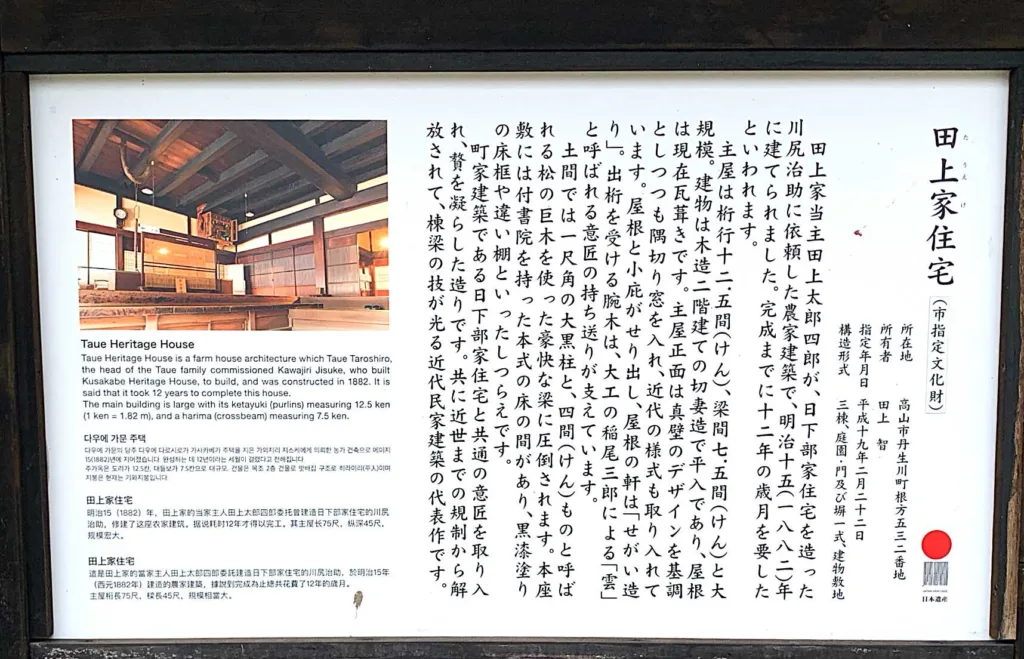 田上家住宅
たうえけ
(市指定文化財)
所在地 高山市丹生川町根方五三二番地
所有者 田上 智
指定年月日 平成十九年二月二十二日
構造形式 三棟、庭園・門及び塀一式、建物敷地
田上家当主田上太郎四郎が、日下部家住宅を造った
川尻治助に依頼した農家建築で、明治十五(一八八二)年
に建てられました。完成までに十二年の歳月を要した
といわれます。
主屋は桁行十二.五間(けん)、梁間七.五間(けん)と大
規模。建物は木造二階建ての切妻造で平入であり、屋根
は現在瓦葺きです。主屋正面は真壁のデザインを基調
としつつも隅切り窓を入れ、近代の様式も取り入れて
います。屋根と小庇がせり出し、屋根の軒は「せがい造
り」。出桁を受ける腕木は、大工の稲尾三郎による「雲」
と呼ばれる意匠の持ち送りが支えています。
土間では一尺角の大黒柱と、四間(けん)ものと呼ば
れる松の巨木を使った豪快な梁に圧倒されます。本座
敷には付書院を持った本式の床の間があり、黒漆塗り
の床框や違い棚といったしつらえです。
町家建築である日下部家住宅と共通の意匠を取り入
れ、贅を凝らした造りです。共に近世までの規制から解
放されて、棟梁の技が光る近代民家建築の代表作です。
日本遺産
Taue Heritage House
Taue Heritage House is a farm house architecture which Taue Taroshiro,
the head of the Taue family commissioned Kawajiri Jisuke, who built
Kusakabe Heritage House, to build, and was constructed in 1882. It is
said that it took 12 years to complete this house.
The main building is large with its ketayuki (purlins) measuring 12.5 ken
(1 ken = 1.82 m), and a harima (crossbeam) measuring 7.5 ken.
다우에 가문 주택
田上家住宅
明治15(1882)年,田上家的当家主人田上太郎四郎委托曾建造日下部家住宅的川尻
治助,修建了这座农家建筑。据说耗时12年才得以完工。其主屋长75尺,纵深45尺,
规模宏大。
田上家住宅
這是田上家的當家主人田上太郎四郎委託建造日下部家住宅的川尻治助,於明治15年
(西元1882年)建造的農家建築,據說到完成為止總共花費了12年的歲月。
主屋桁長75尺、樑長45尺,規模相當大。